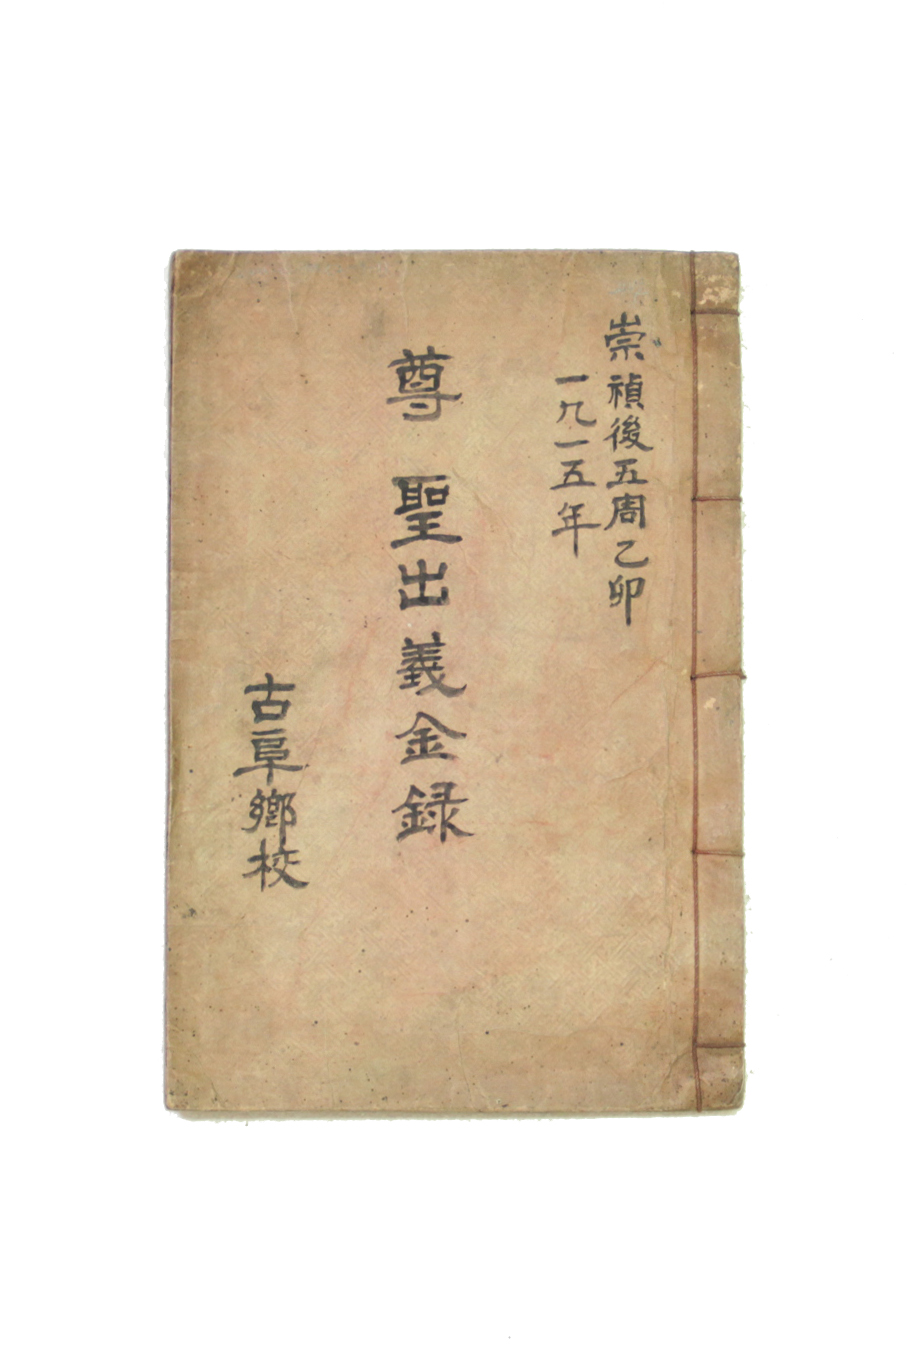 崇禎後五周乙卯
一九一五年
尊聖出義金録
古阜鄕校